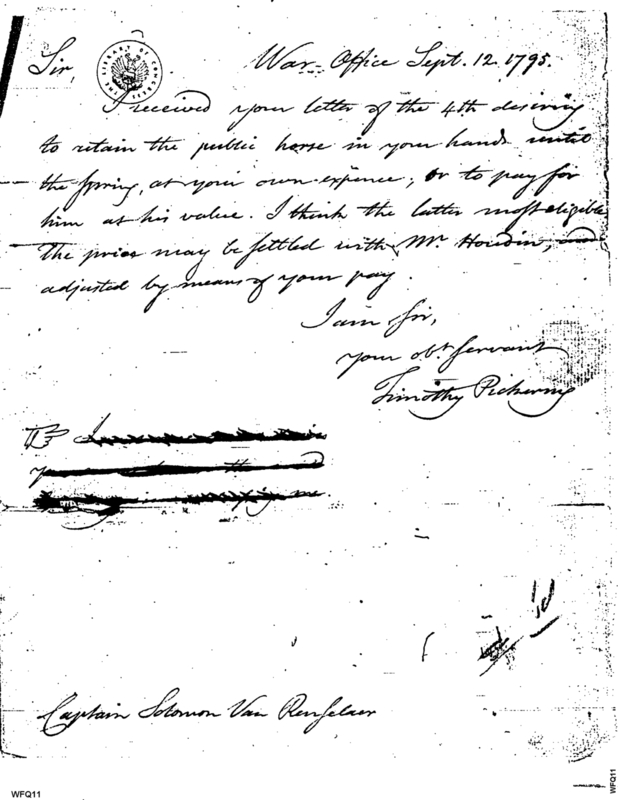 War-Office Sept. 12. 1795.
Sir,
THE LIBRARY OF CONGRESS
I received your letter of the 4th desiring
to retain the public horse in your hands until
the spring, at your own expence; or to pay for
him at his value. I think the latter most eligible
The price may be settled with Mr. Houdin, and
adjusted by means of your pay.
I am Sir,
your obt. servant
Timothy Pickering
Captain Solomon Van Renselaer
WFQ11
WFQ11